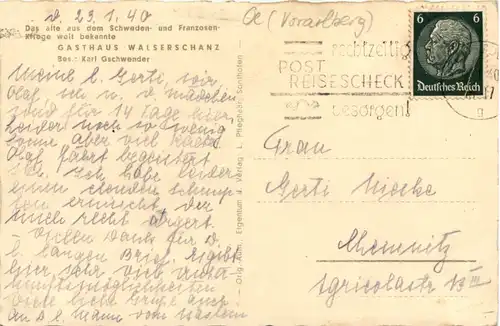 d. 23.1.40
Oe (Vorarlberg)
Das alte aus dem Schweden- und Franzosen-
Kriege weit bekannte
GASTHAUS WALSERSCHANZ
Bes.: Karl Gschwender
6 6
Deutsches Reich
rechtzeitig
POST
REISESCHECK
besorgen!
Meine l. Gerti, wir,
Olaf, ich u. d. Mädchen
sind für 14 Tage hier.
Leider noch so wenig
Sonne aber viel
Olaf fährt begeistert
Ski. Ich habe leider
einen elenden Schnup-
fen erwischt, der
mich recht ärgert.
– Vielen Dank für d.
l. langen Brief. Es gibt
hier sehr viel
Viele liebe Grüße auch
an D. l. Mann vom
Orig. Aufn. Eigentum u. Verlag L. Pfleghaar, Sonthofen
Frau
Gerti
Chemnitz
Agricolastr. 13 III